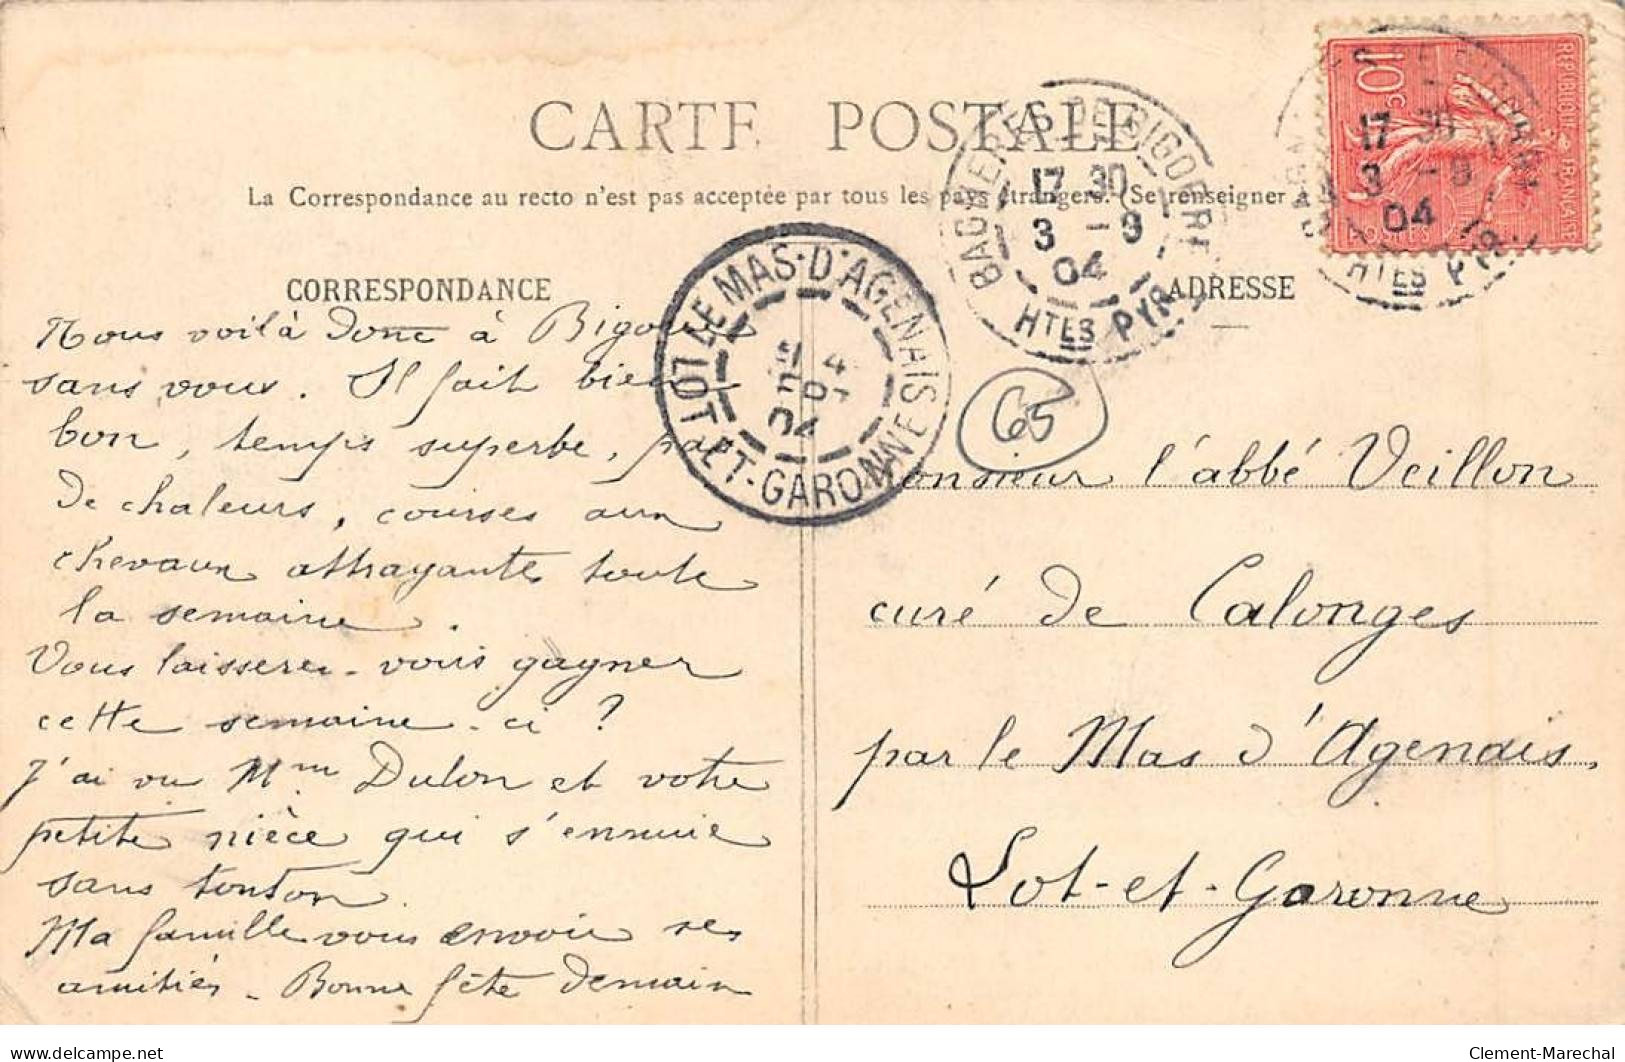 CARTE POSTALE
La Correspondance au recto n'est pas acceptée par tous les pays étrangers. (Se renseigner à
CORRESPONDANCE
Nous voilà donc à Bigorre
sans vous. Il fait bien
bon, temps superbe, pas
de chaleurs, courses aux
chevaux attrayantes toute
la semaine.
Vous laisserez-vous gagner
cette semaine-ci ?
J'ai vu Mme Dulon et votre
petite nièce qui s'ennuie
sans tonton.
Ma famille vous envoie ses
amitiés - Bonne fête demain
ADRESSE
Monsieur l'abbé Veillon
curé de Calonges
par le Mas d'Agenais,
Lot-et-Garonne
65
LE MAS-D'AGENAIS
LOT-ET-GARONNE
04
BAGNERES-DE-BIGORRE
17 30
3 -9
04
HTES PYR
REPUBLIQUE FRANÇAISE
10c
POSTES
17 30
3 -9
04
HTES PYR
Clement-Marechal
www.delcampe.net